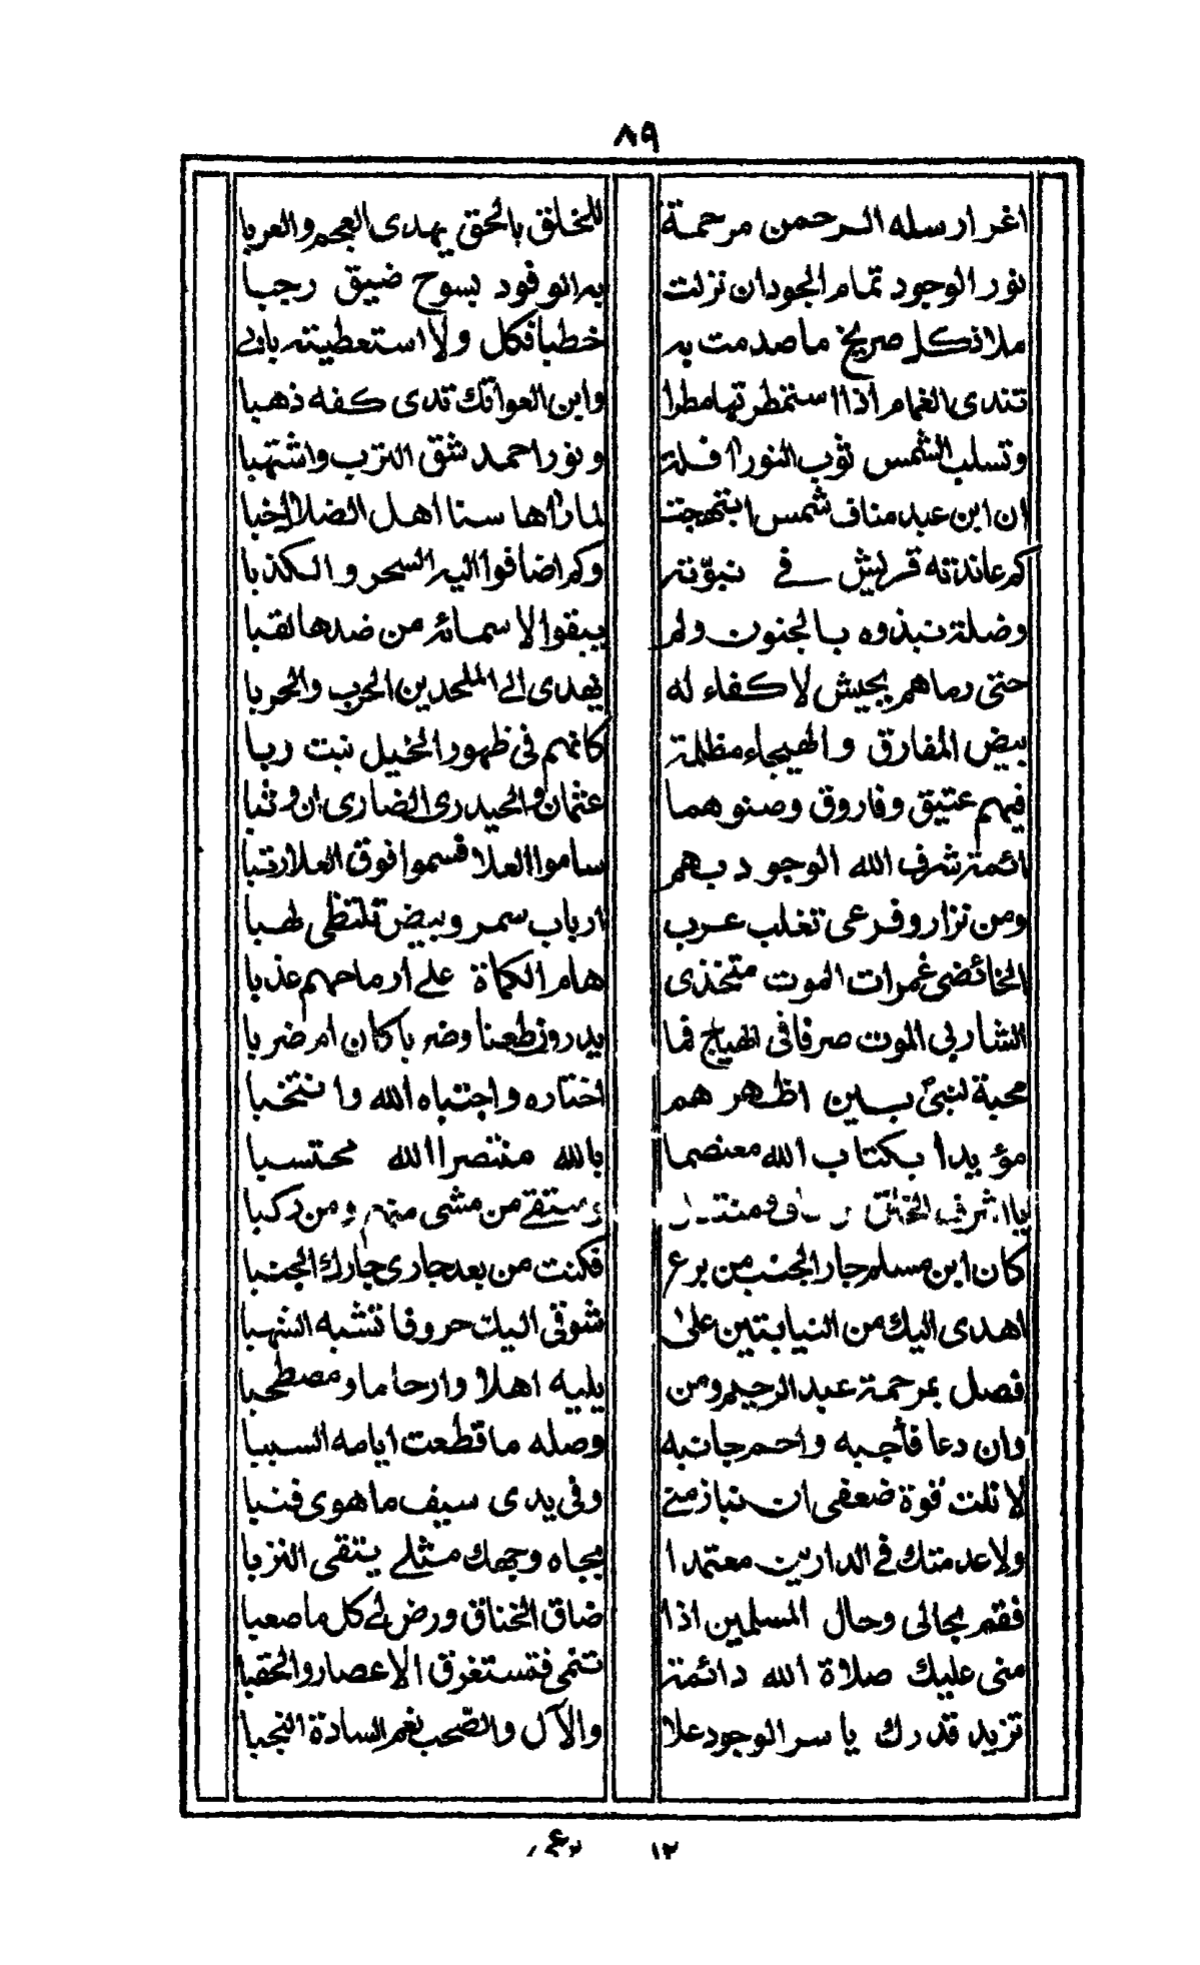 ٨٩
اغر ارسله الرحمن مرحمة للخلق بالحق يهدى العجم والعربا
نور الوجود تمام الجود ان نزلت به الوفود بسوح ضيق رحبا
ملاذ كل صريخ ما صدمت به خطبا فكل ولا استعطيته فابى
تندى الغمام اذا استمطرتها مطرا وابن العواتك تدى كفه ذهبا
وتسلب الشمس ثوب النور آفلة ونور احمد شق الترب واشتهبا
ان ابن عبد مناف شمس ابتهجت لما رآها سنا اهل الضلال خبا
كم عاندته قريش فى نبوّته وكم اضافوا اليه السحر والكذبا
وضلة نبذوه بالجنون ولم يبقوا لاسمائه من ضدها لقبا
حتى رماهم بجيش لا كفاء له يهدى الى الملحدين الحرب والحربا
بيض المفارق والهيجاء مظلمة كانهم فى ظهور الخيل نبت ربا
فيهم عتيق وفاروق وصنوهما عثمان والحيدرى الضارى ان وثبا
ائمة شرف الله الوجود بهم ساموا العلا فسموا فوق العلا رتبا
ومن نزار وفرعى تغلب عرب ارباب سمر وبيض تلتظى لهبا
الخائضى غمرات الموت متخذى هام الكماة على ارماحهم عذبا
الشاربى الموت صرفا فى الهياج فما يدرون طعنا وضربا كان ام ضربا
محبة لنبىّ بين اظهرهم اختاره واجتباه الله وانتخبا
مؤيدا بكتاب الله معتصما بالله منتصرا الله محتسبا
يا اشرف الخلق من مشى منهم ومن ركبا
كان ابن مسلم جار الجنب من برع فكنت من بعد جارى جارك الجنبا
اهدى اليك من النيابتين على شوقى اليك حروفا تشبه الشهبا
فصل بمرحمة عبد الرحيم ومن يليه اهلا وارحاما ومصطحبا
وان دعا فأجبه واحم جانبه وصله ما قطعت ايامه السببا
لا نلت قوة ضعفى ان نبا زمنى وفى يدى سيف ماهوى فنبا
ولا عدمتك فى الدارين معتمدا بجاه وجهك مثلى يتقى النزبا
فقم بحالى وحال المسلمين اذا ضاق الخناق ورض لى كل ما صعبا
منى عليك صلاة الله دائمة تنمى فتستغرق الاعصار والحقبا
تزيد قدرك يا سر الوجود علا والآل والصّحب نعم السادة النجبا
١٢